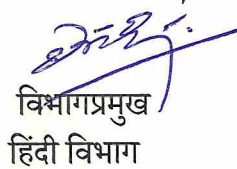 विभागप्रमुख
हिंदी विभाग